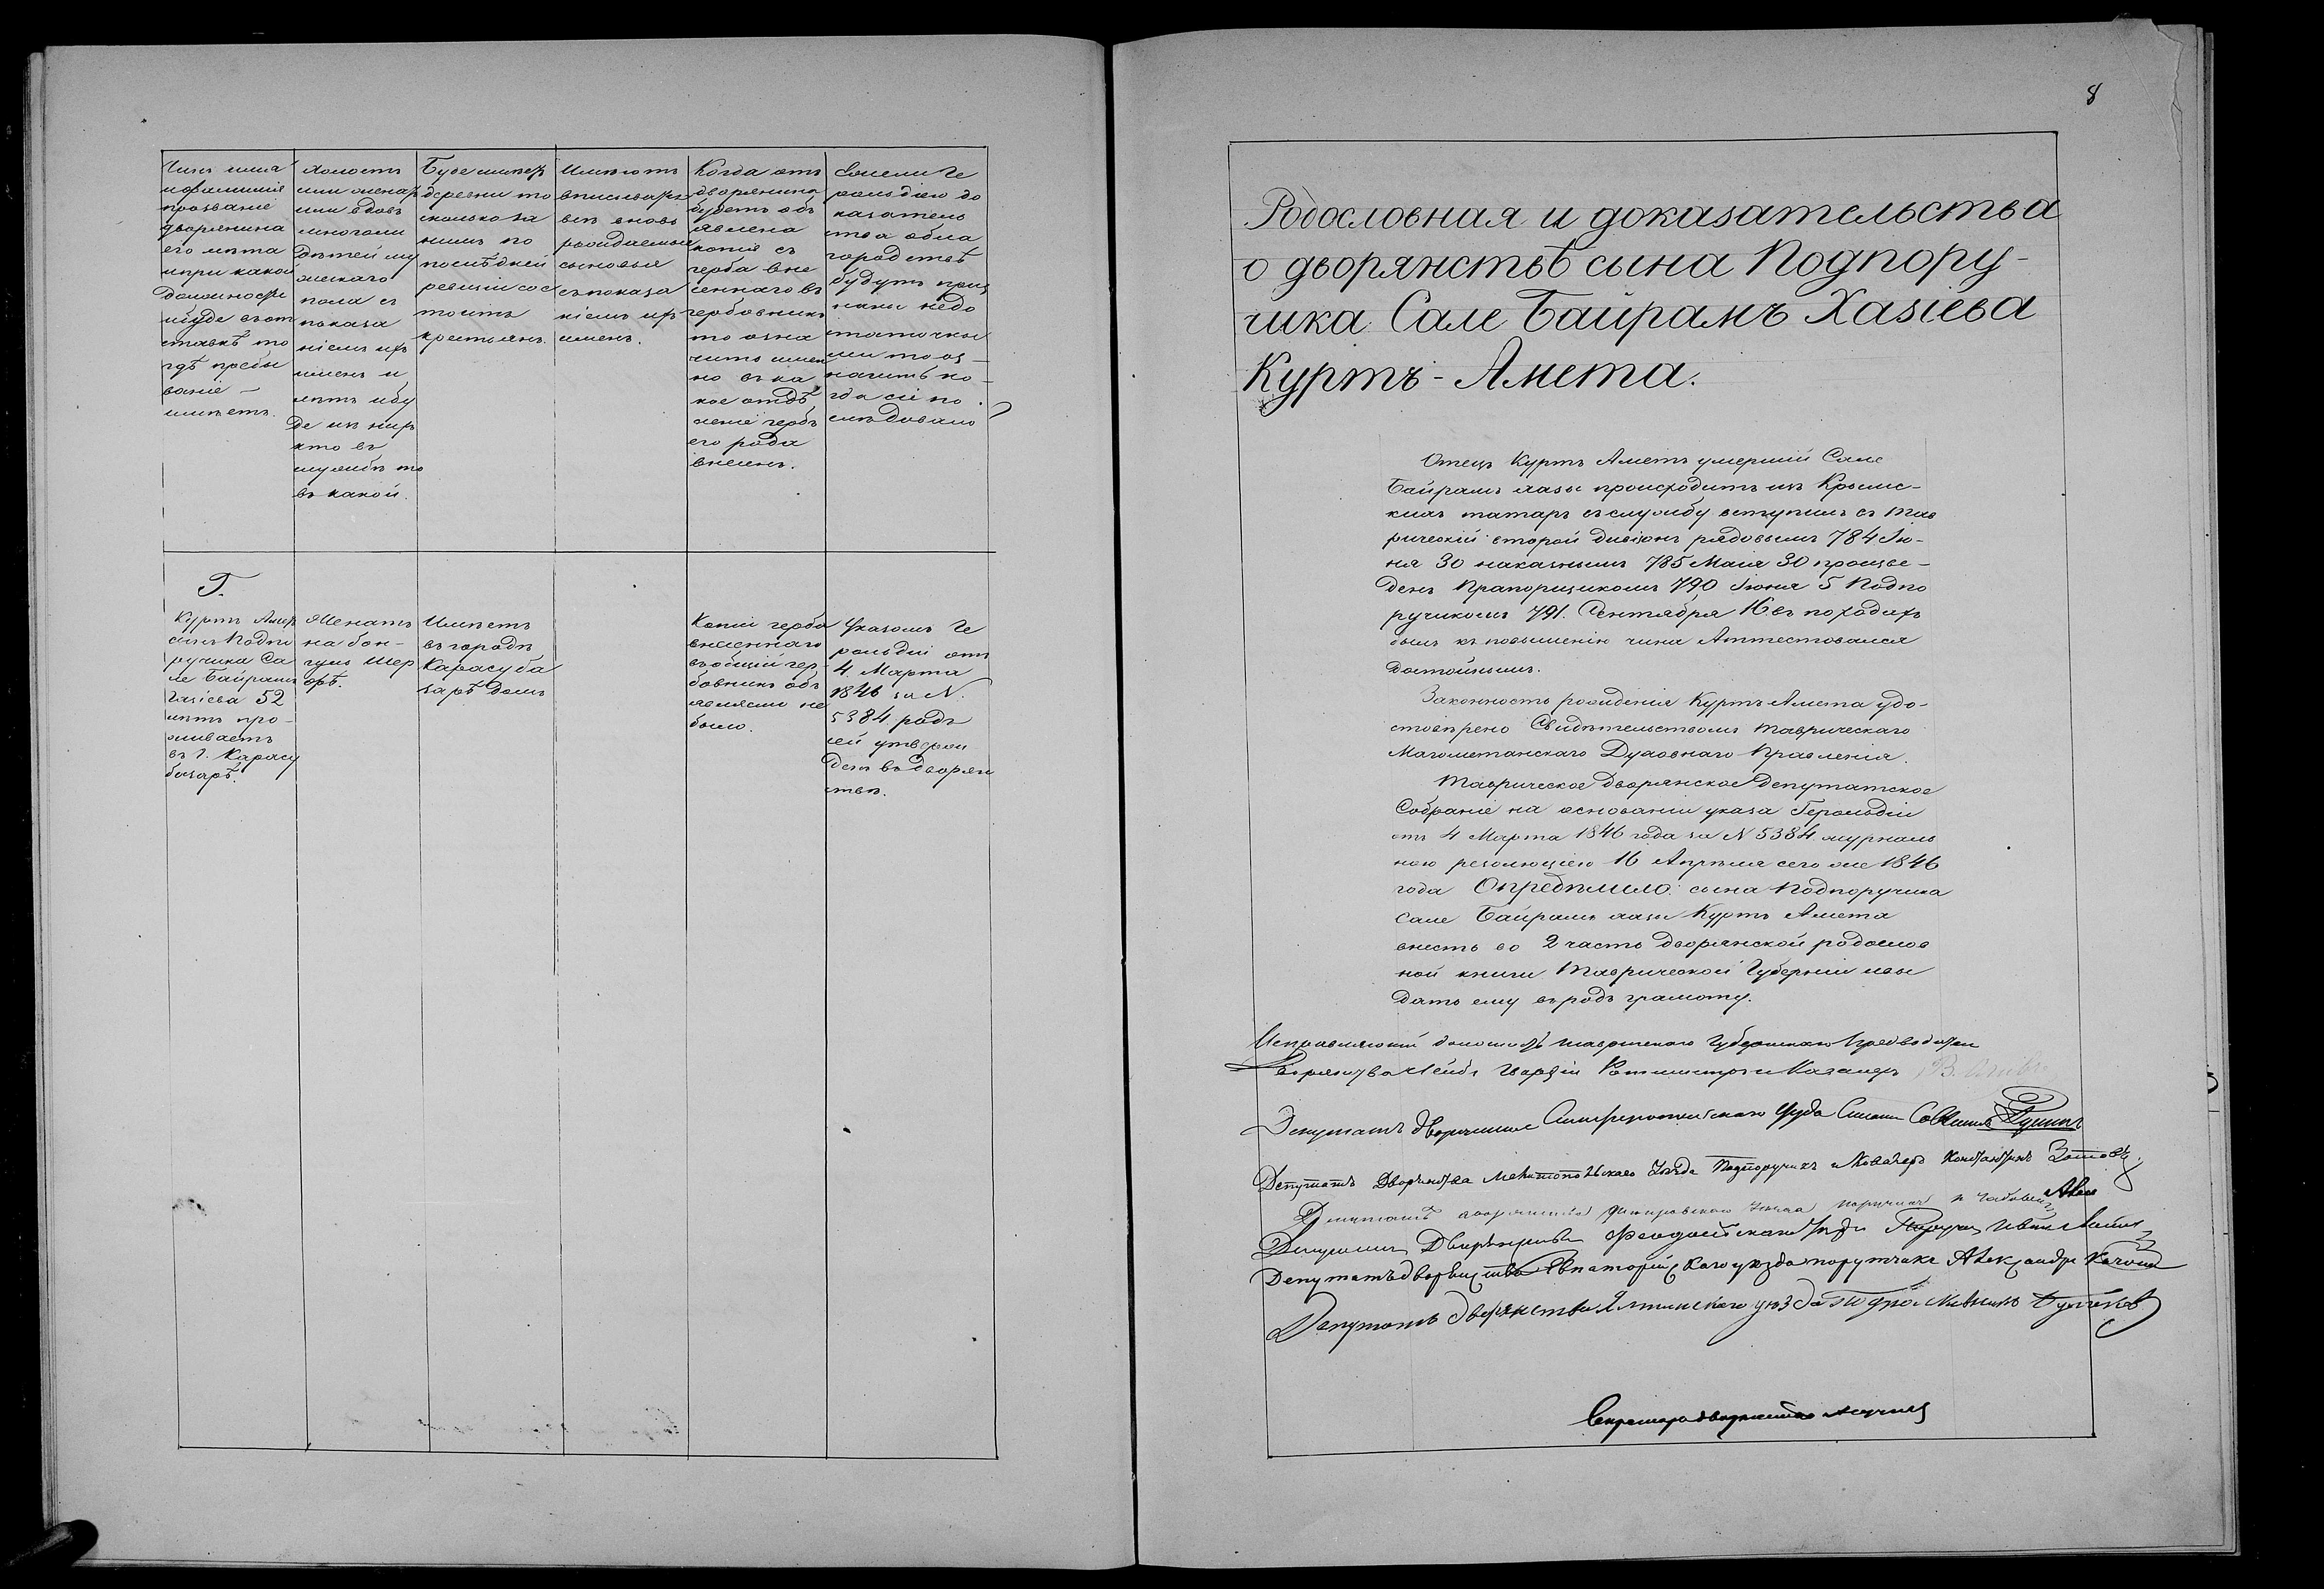 Чинъ имя
и фамилія
прозваніе
дворянина
его лѣта
и при какой
должности
и буде въ от
ставкѣ то
гдѣ пребы
ваніе —
имѣетъ.
Холостъ
или женатъ
или вдовъ
много ли
дѣтей му
жескаго
пола съ
показа
ніемъ ихъ
именъ и
лѣтъ и бу
де изъ нихъ
кто въ
службѣ то
въ какой.
Буде имѣетъ
деревни то
сколько за
нимъ по
послѣдней
ревизіи сос
тоитъ
крестьянъ.
Имѣютъ
вписывать
всѣ вновь
рождаемые
сыновья
съ показа
ніемъ ихъ
именъ.
Когда отъ
дворянина
будетъ объ
явлена
копія съ
герба вне
сеннаго въ
гербовникъ
то озна
чить имен
но въ ка
кое отдѣ
леніе гербъ
его рода
внесенъ.
Ежели Ге
рольдіею до
казатель
ства о бла
городствѣ
будутъ приз
наны недо
статочны
ми то оз —
начить ко —
гда сіе по
слѣдовало
Г.
Куртъ Амет
сынъ Подпо
ручика Са
ле Байрамъ
Газіева 52
лѣтъ про —
живаетъ
въ г. Карасу
базарѣ.
Женатъ
на Бон —
гуль Шер
фѣ.
Имѣетъ
въ городѣ
Карасуба
зарѣ домъ
Копіи герба
внесеннаго
въ общій гер —
бовникъ объ
являемо не
было.
Указомъ Ге
рольдіи отъ
4. Марта
1846 за N.
5384 родъ
сей утверж
денъ въ дворян
ствѣ.
8
Родословная и доказательства
о дворянствѣ сына Подпору —
чика Сале Байрамъ Хазіева
Куртъ - Амета.
Отецъ Куртъ Аметъ умершій Сале
Байрамъ хазы происходитъ изъ Крымс —
кихъ татаръ въ службу вступилъ въ Тав
рическій второй дивізіонъ рядовымъ 784 Ію —
ня 30 наказнымъ 785 Маія 30 произве —
денъ Прапорщикомъ 790 Іюня 5 Подпо
ручикомъ 791. Сентября 16 въ походахъ
былъ къ повышенію чина Аттестовался
достойнымъ.
Законность рожденія Куртъ Амета удо —
стовѣрено Свидѣтельствомъ Таврическаго
Магометанскаго Духовнаго Правленія.
Таврическое Дворянское депутатское
Собраніе на основаніи указа Герольдіи
отъ 4 Марта 1846 года за N 5384 журналь
ною резолюціею 16 Апрѣля сего же 1846
года Опредѣлило: сына Подпоручика
Сале Байрамъ хазы Куртъ Амета
внесть во 2 часть дворянской родослов
ной книги Таврической Губерніи и вы
дать ему въ родъ грамоту.
Исправляющій должность Таврическаго Губернскаго Предводителя
Дворянства Лейбъ Гвардіи Ротмистръ и Кавалеръ
Депутатъ дворянства Симферопольскаго уѣзда
Депутатъ Дворянства Мелитопольскаго Уѣзда Подпоручикъ и Кавалеръ Константинъ Зотовъ.
Депутатъ дворянства Днѣпровскаго Уѣзда поручикъ
Депутатъ Дворянства Феодосійскаго Уѣзда Поручикъ Иванъ
Депутатъ дворянства Евпаторійскаго уѣзда порутчикъ Александръ
Депутатъ дворянства Ялтинскаго уѣзда
Секретарь дворянства